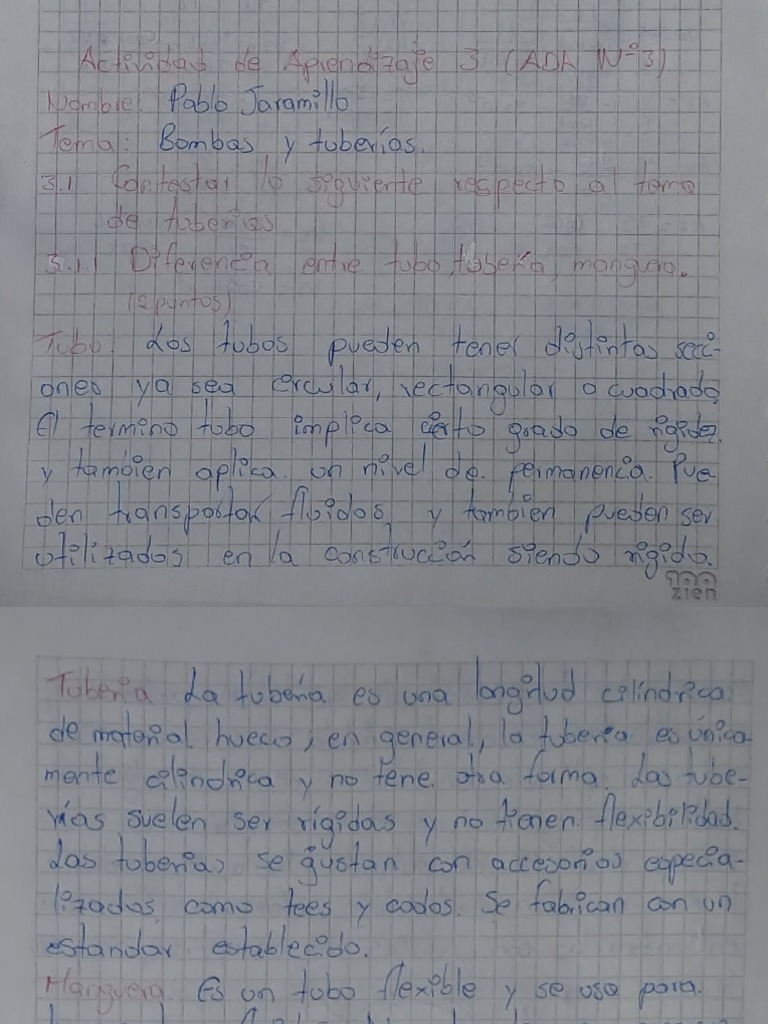 Actividad de Aprendizaje 3 (ADA N°3)
Nombre: Pablo Jaramillo
Tema: Bombas y tuberías.
3.1 Contestar lo siguiente respecto al tema
de tuberias
3.1.1 Diferencia entre tubo, tubería, manguera.
(2 puntos)
Tubo. Los tubos pueden tener distintas secci-
ones ya sea circular, rectangular o cuadrado
El termino tubo implica cierto grado de rigidez
y tambien aplica un nivel de permanencia. Pue-
den transportar fluidos y tambien pueden ser
utilizados en la construcción siendo rigido.
100
zien
Tuberia La tubería es una longitud cilíndrica
de material hueco, en general, la tuberia es única
mente cilindrica y no tene otra forma. Las tube-
rías suelen ser rígidas y no tienen flexibilidad.
Las tuberias se gustan con accesorios especia-
lizados como tees y codos. Se fabrican con un
estandar establecido.
Manguera Es un tubo flexible y se usa para